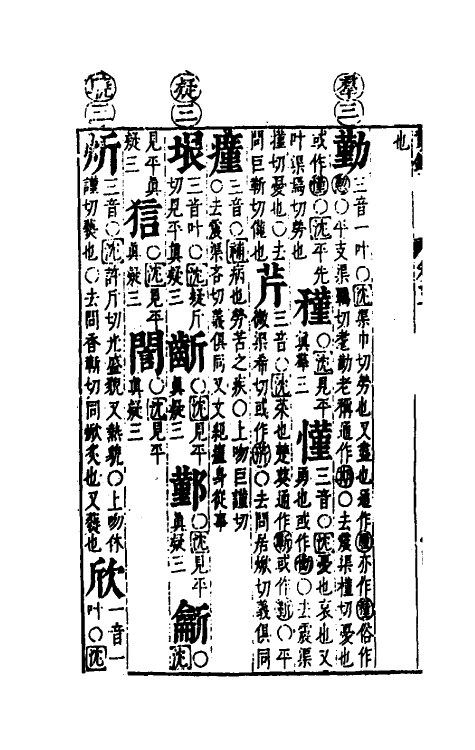 羣三
疑三
三
也
勤 三音一叶○沈渠巾切勞也又盡也通作 亦作 俗作
或作 ○平支渠羈切耄勤老稱通作 ○去震渠槿切憂也
○沈平先
叶渠焉切勞也
矜 ○沈見平
真羣三
慬 三音○沈憂也哀也又
勇也或作 ○去震渠
槿切憂也○去
問巨靳切僅也
芹 三音○沈菜也楚葵通作 或作 ○平
微渠希切或作 ○去問居焮切義俱同
瘽 三音○補病也勞苦之疾○上吻巨謹切
○去震渠吝切義俱同又文親瘽身從事
垠 三音叶○沈疑斤
切見平真疑三
齗 ○沈見平
真疑三
鄞 ○沈見平
真疑三
○沈
見平真
疑三
狺 ○沈見平
真疑三
誾 ○沈見平
真疑三
炘 三音○沈許斤切光盛貌又熱貌○上吻休
謹切爇也○去問香靳切同焮炙也又爇也
欣 一音一
叶○沈